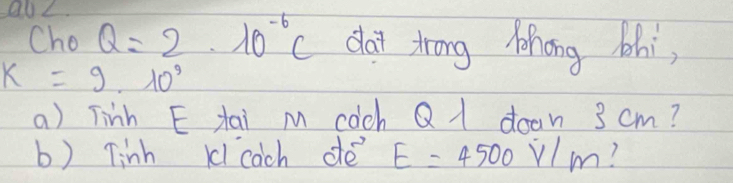 Cho Q = 2 . 10⁻⁶ C đặt trong không khí,
K = 9. 10⁹
a) Tính E tại M cách Q 1 đoạn 3 cm?
b) Tính k/cách để E = 4500 V/m?